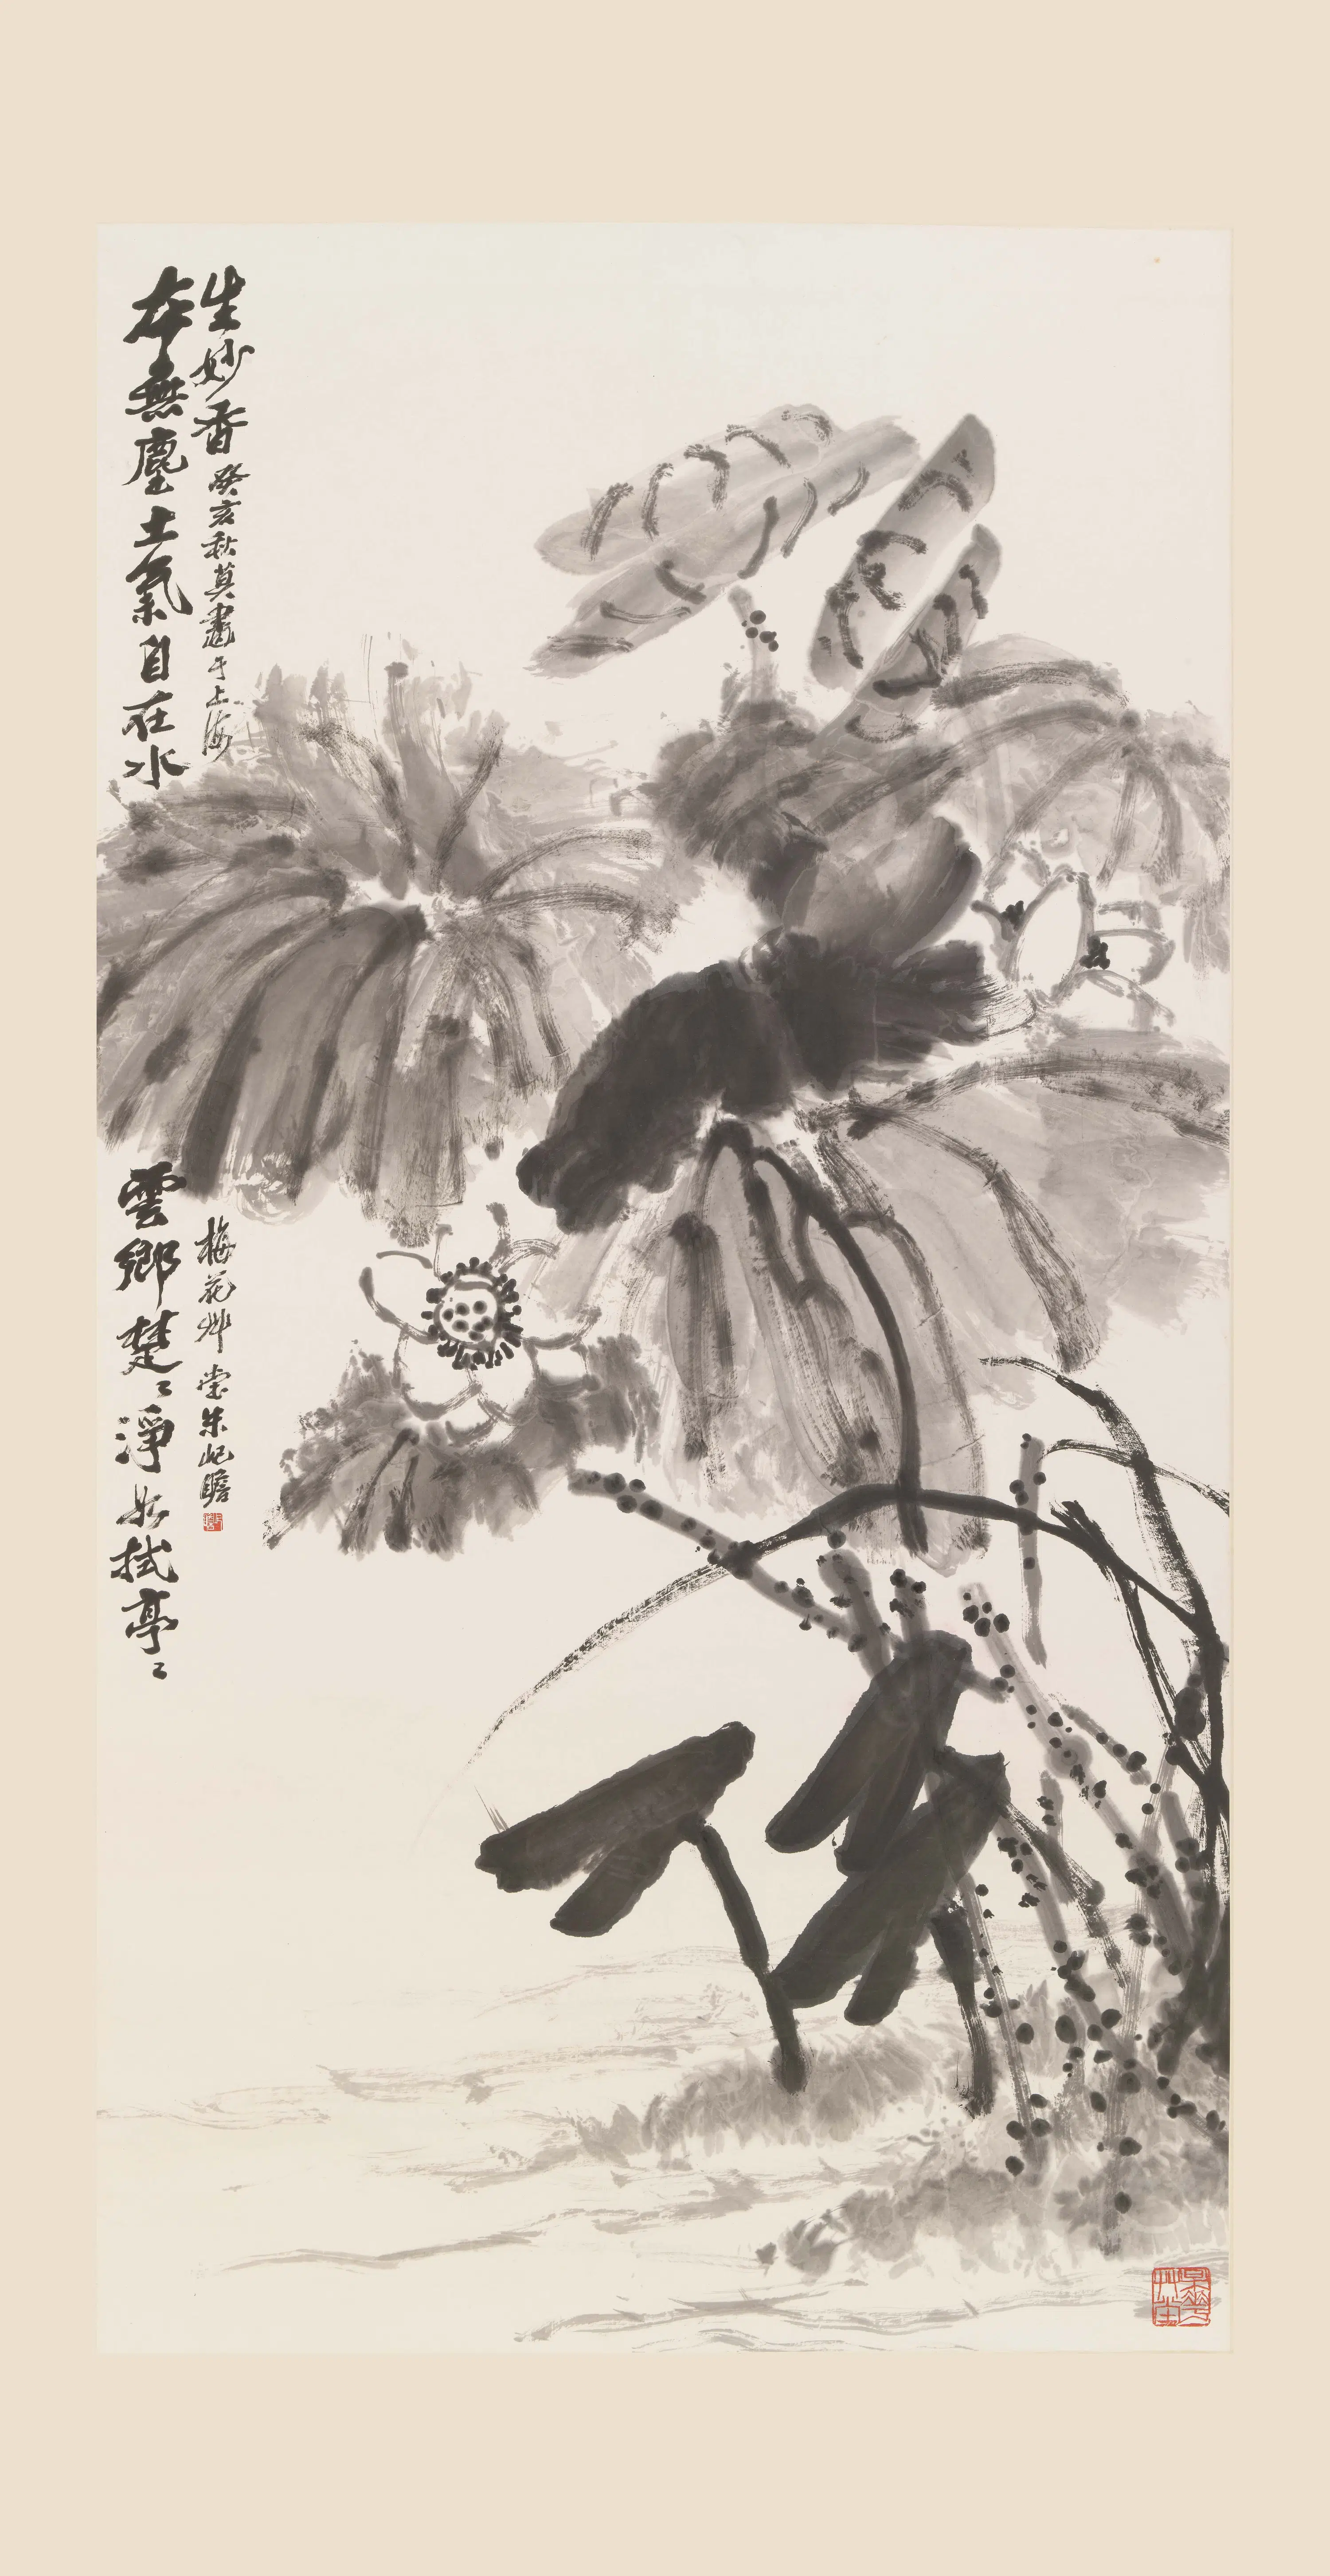 本無塵土氣自在水雲鄉楚〻淨如拭亭〻
生妙香 癸亥秋莫畫于上海梅花艸堂朱屺瞻